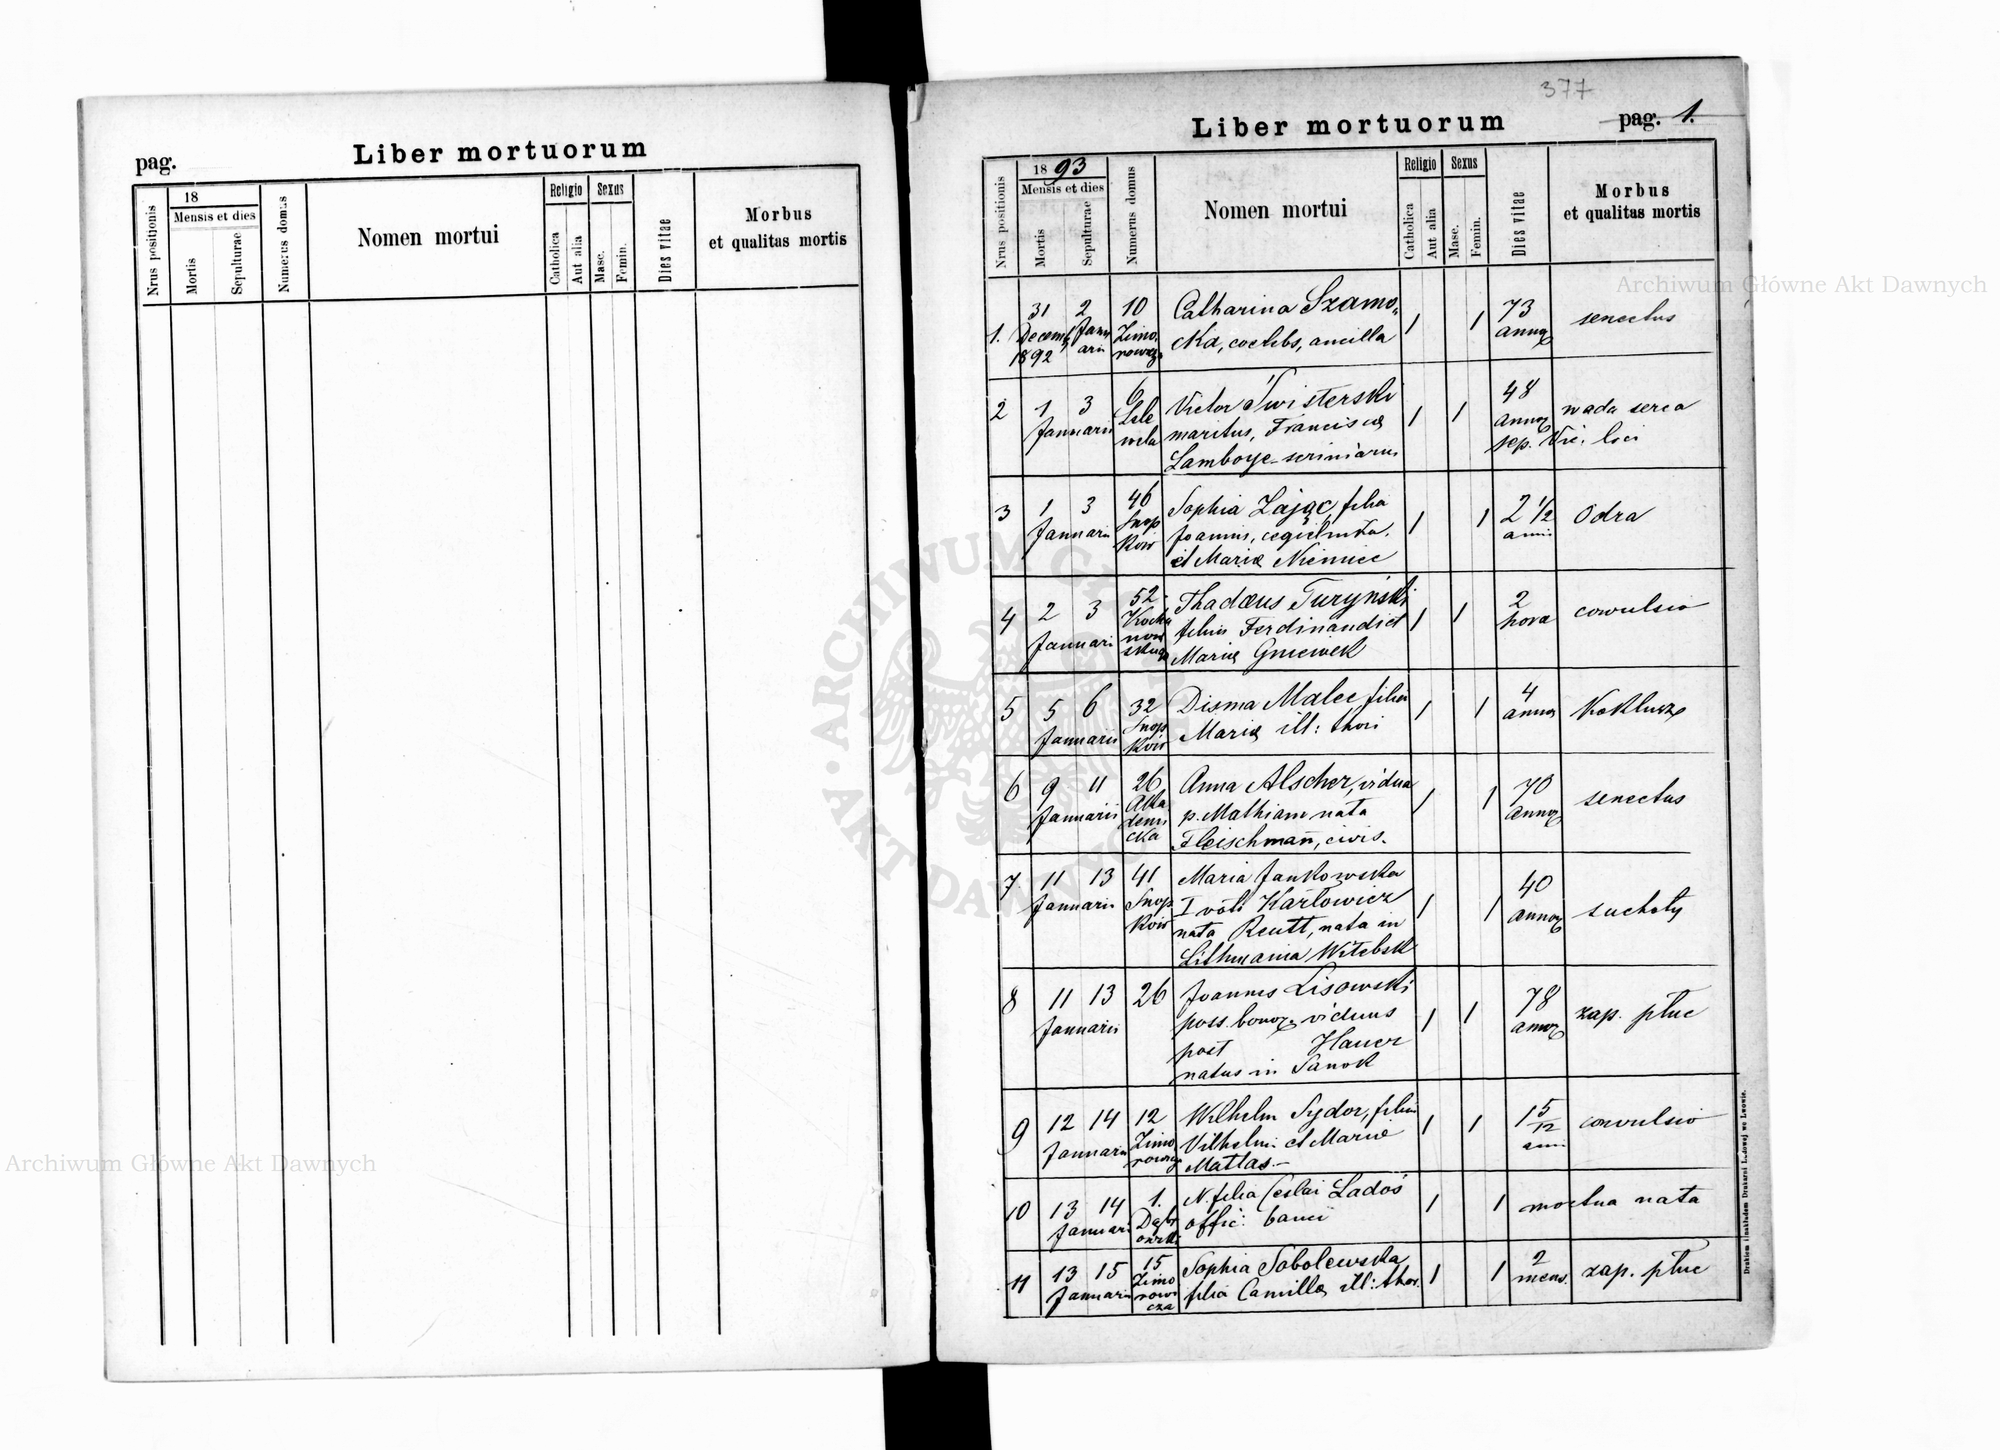 pag.
Liber mortuorum
Nrus positionis
18
Mensis et dies
Mortis
Sepulturae
Numerus domus
Nomen mortui
Religio
Catholica
Aut alia
Sexus
Masc.
Femin.
Dies vitae
Morbus
et qualitas mortis
377
Liber mortuorum
pag. 1.
Nrus positionis
1893
Mensis et dies
Mortis
Sepulturae
Numerus domus
Nomen mortui
Religio
Catholica
Aut alia
Sexus
Masc.
Femin.
Dies vitae
Morbus
et qualitas mortis
1. 31 2 10 Catharina Szamo„ 1 1 73 senectus
Decemb Janu Zimo
1892 arii rowicz cka, coelebs, ancilla
2 1 3 6 Victor Twisterski 1 1 48 wada serca
Januarii Lele maritus, Francisca
wela Lamboye
sep. Vic. loci
3 1 3 46 Sophia Zając, filia 1 1 2 1/2 Odra
Januarii Snop Joannis,
ków et Mariæ Niemiec anni
4 2 3 52 Thadæus Turyński 1 1 2 convulsio
Januarii filius Ferdinandi et hora
Mariæ Gniewek
5 5 6 32 Disma Malec filia 1 1 4 Koklusz
Januarii Snop Mariæ ill: thori
ków
6 9 11 26 Anna Alscher, vidua 1 1 70 senectus
Januarii Aka p. Mathiam nata
demi Fleischmañ, civis.
cka
7. 11 13 41 Maria Jankowska 1 1 40 suchoty
Januarii Snop I voti Karłowicz
ków nata Reutt, nata in
Lithuania Witebsk
8 11 13 26 Joannes Lisowski 1 1 78 zap. płuc
Januarii viduus
post Hauer
natus in Sanok
9 12 14 12 Wilhelm Sydor, filius 1 1 15/12 convulsio
Januarii Zimo Vilhelmi et Mariæ anni
Matlas.—
10 13 14 1. N. filia Ceslai Ładoś 1 1 mortua nata
Januarii Dąbr offic:
11 13 15 15 Sophia Sobolewska 1 1 2 zap. płuc
Januarii Zimo filia Camillæ ill: thor. mens.
rowi
cza
Drukiem i nakładem Drukarni Ludowej we Lwowie.
Archiwum Główne Akt Dawnych
Archiwum Główne Akt Dawnych
ARCHIWUM GŁÓWNE AKT DAWNYCH